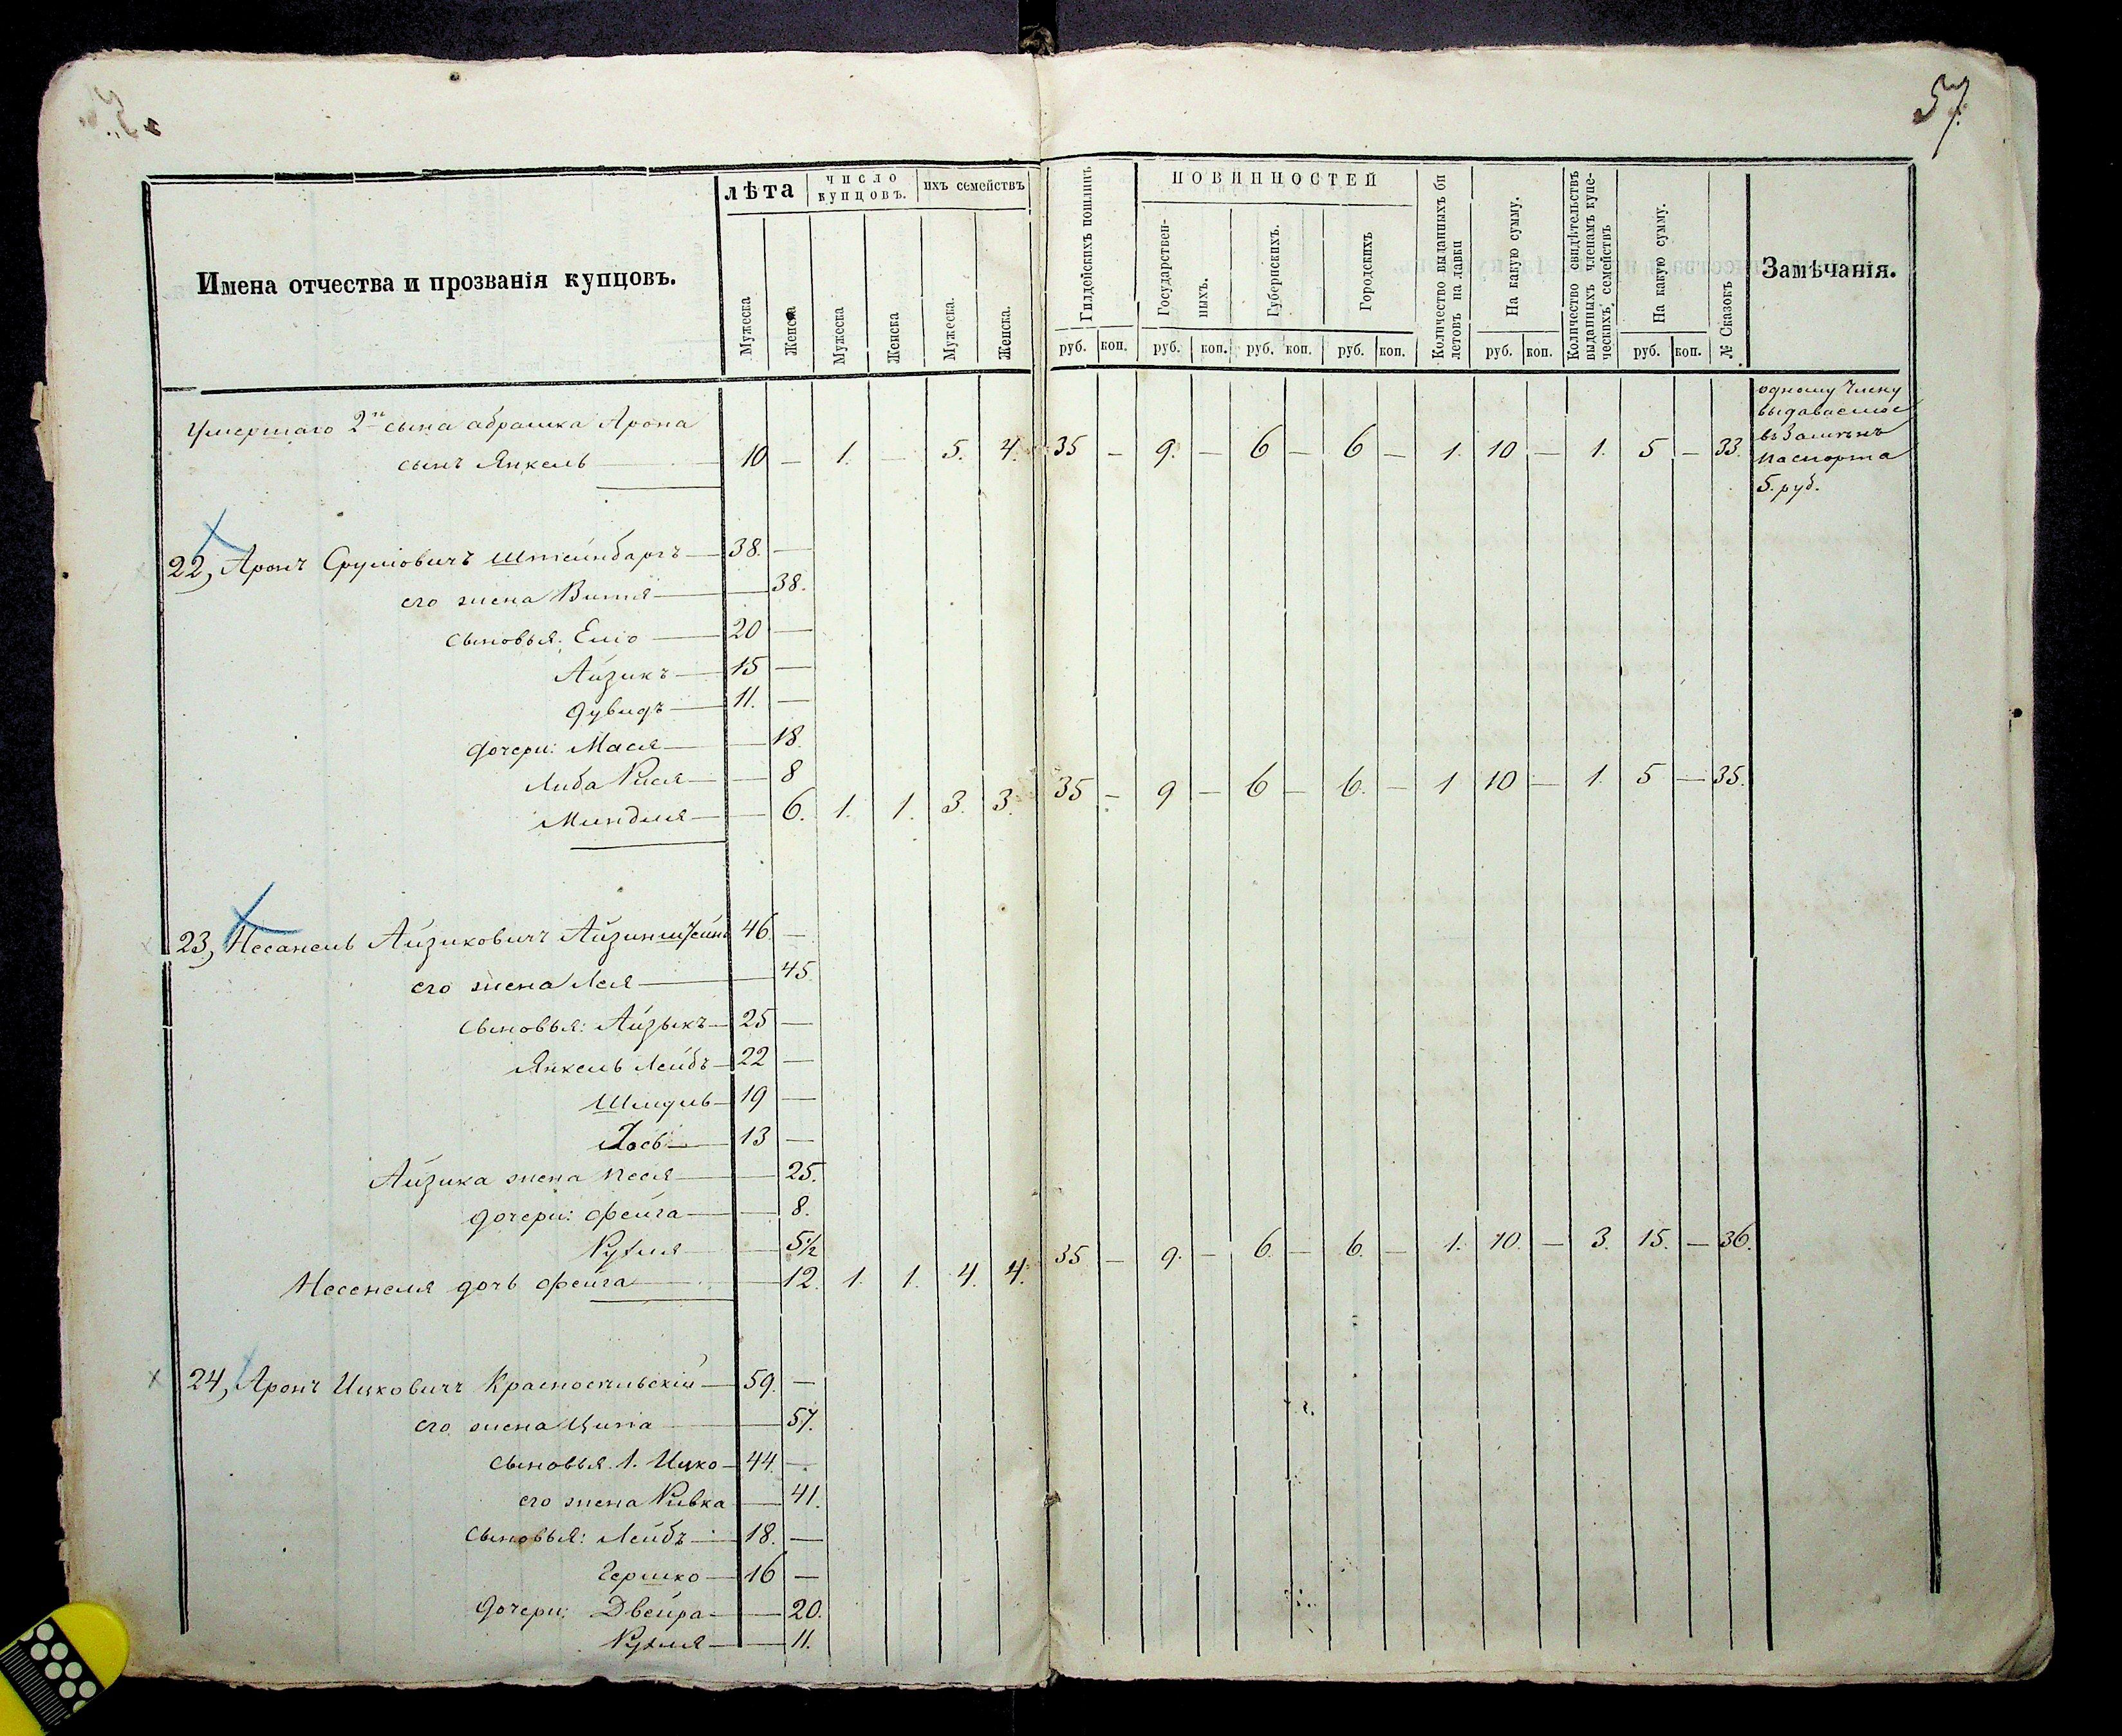 57.
Имена отчества и прозванія купцовъ.
лѣта
число купцовъ.
ихъ семействъ
Мужеска
Женска
Мужеска
Женска
Мужеска.
Женска.
Гилдейскихъ пошлинъ
ПОВИННОСТЕЙ
Государствен-
ныхъ.
Губернскихъ.
Городскихъ
Количество выданныхъ би
летовъ на лавки
На какую сумму.
Количество свидѣтельствъ
выданныхъ членамъ купе-
ческихъ семействъ
На какую сумму.
№ Сказокъ
Замѣчанія.
руб. коп. руб. коп. руб. коп. руб. коп. руб. коп. руб. коп.
Умершаго 2го сына абрамка Арона
сынъ Янкель — 10 — 1. — 5. 4. 35 — 9. — 6 — 6 — 1. 10 — 1. 5 — 33.
одному Члену
выдаваемое
въ Замѣнъ
паспорта
5. руб.
22, Аронъ Сруліовичъ Штейнбаргъ — 38. —
его жена Витя — 38.
сыновья: Еліо — 20 —
Айзикъ — 15 —
Дувидъ — 11. —
дочери: Мася — 18.
Либа Рися — 8
Миндля — 6. 1. 1. 3. 3. 35 — 9 — 6 — 6. — 1 10 — 1. 5 — 35.
23, Несанель Айзиковичъ Айзинштейнъ 46. —
его жена Лея — 45.
сыновья: Айзыкъ — 25 —
Янкель Лейбъ — 22 —
Шмуль — 19 —
13 —
Айзика жена Песя — 25.
дочери: Фейга — 8.
Рухля — 5½
Несенеля дочь Фейга — 12. 1. 1. 4. 4. 35 — 9. — 6. — 6. — 1. 10. — 3. 15. — 36.
24, Аронъ Ицковичъ Красносельскій — 59. —
его жена Ципа — 57.
сыновья 1. Ицко — 44. —
его жена Ривка — 41.
сыновья: Лейбъ — 18. —
Гершко — 16 —
дочери: Двейра — 20.
Рухля — 11.